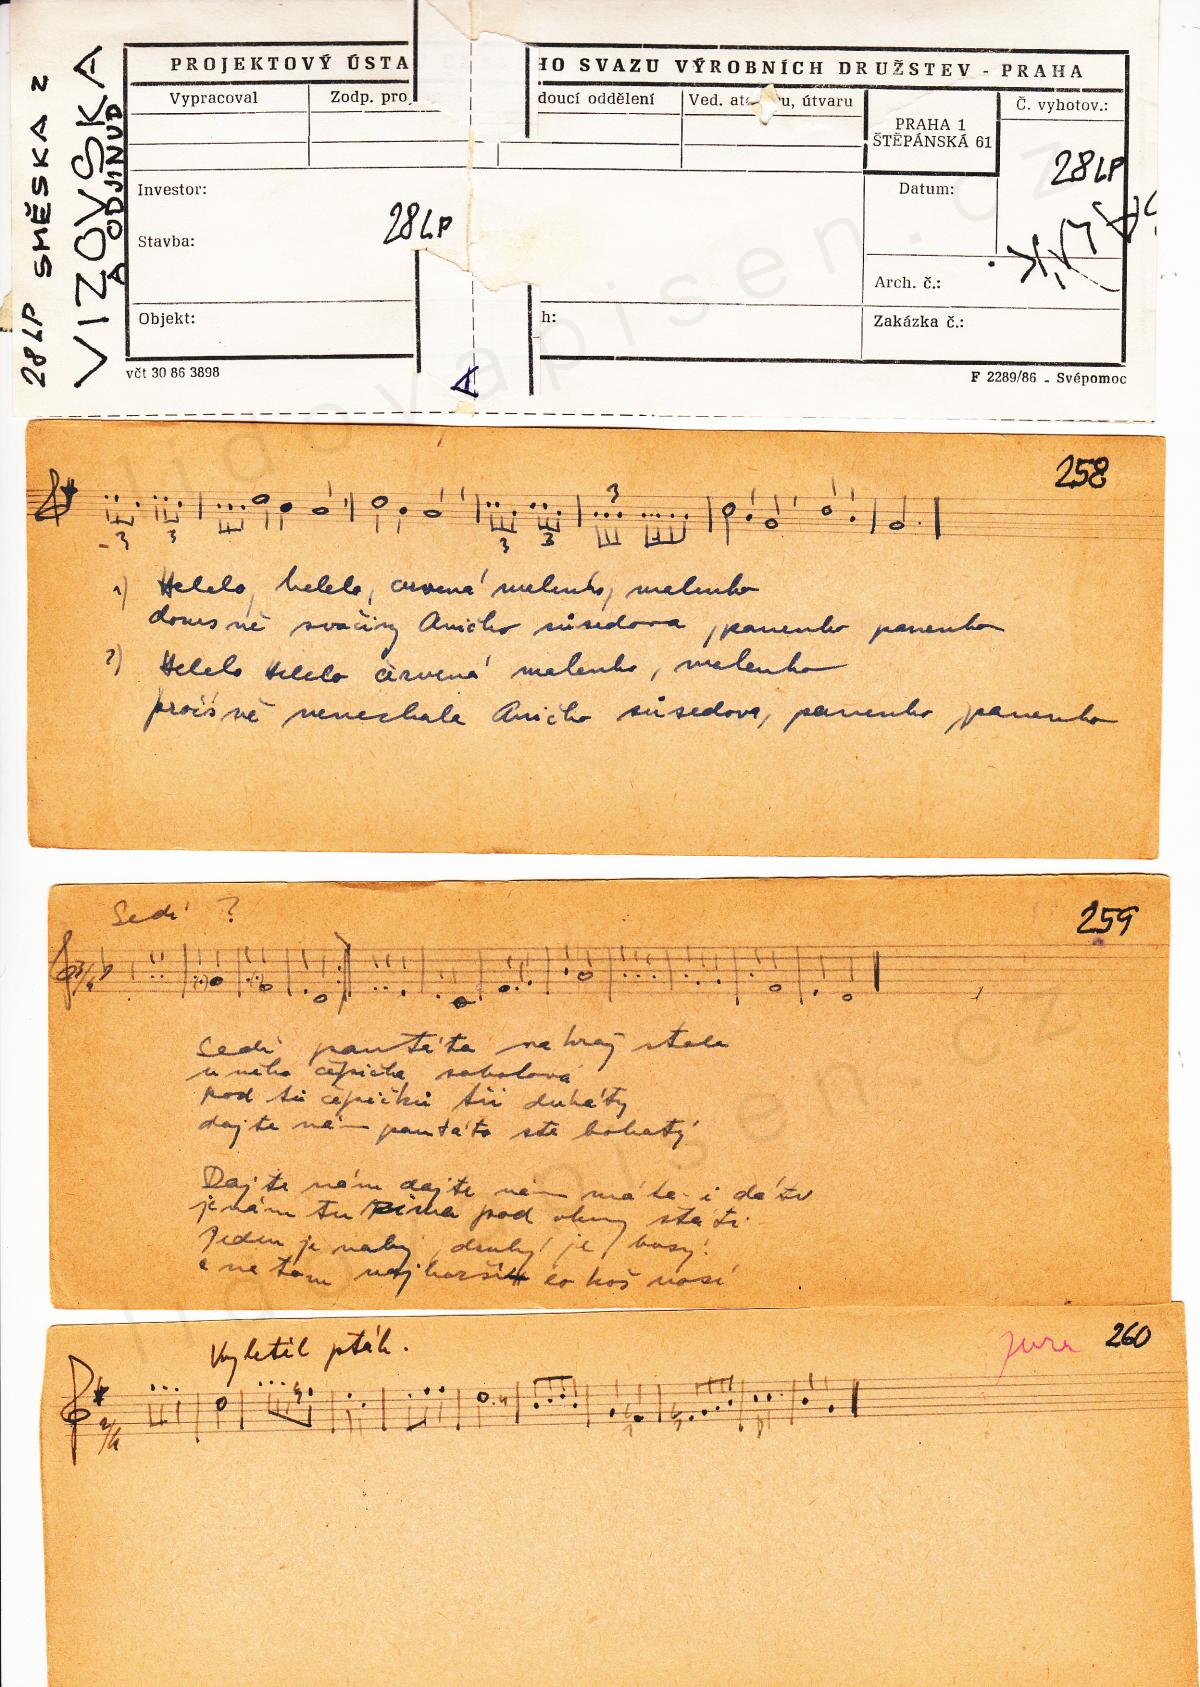 28LP SMĚSKA Z
VIZOVSKA
A ODJINUD
PROJEKTOVÝ ÚSTA HO SVAZU VÝROBNÍCH DRUŽSTEV - PRAHA
Vypracoval Zodp. proj. doucí oddělení Ved. ate u, útvaru Č. vyhotov.:
PRAHA 1
ŠTĚPÁNSKÁ 61
28LP
Investor: Datum:
28LP
Stavba:
Arch. č.:
Objekt: h: Zakázka č.:
včt 30 86 3898 A F 2289/86 - Svépomoc
258
3 3 3 3 3
1) Helelo, helelo, červená malenko, malenko
dones ně svačiny Aničko súsedova, panenko panenko
2) Helelo Helelo červená malenko, malenko
pročis ně nenechala Aničko súsedova, panenko, panenko
Sedí ?
259
3/4
Sedí pantáta na kraj stola
u něho čepička sobolová
pod tú čepičkú tři dukáty
dajte nám pantáto ste bohatý
Dajte nám dajte nám máte-i dáti
je nám tu zima pod okny státi
Jeden je nahý, druhý je bosý
a ne tom najhorší co koš nosí
Vyletěl pták.
Jura 260
2/4
lidovapisen.cz
lidovapisen.cz